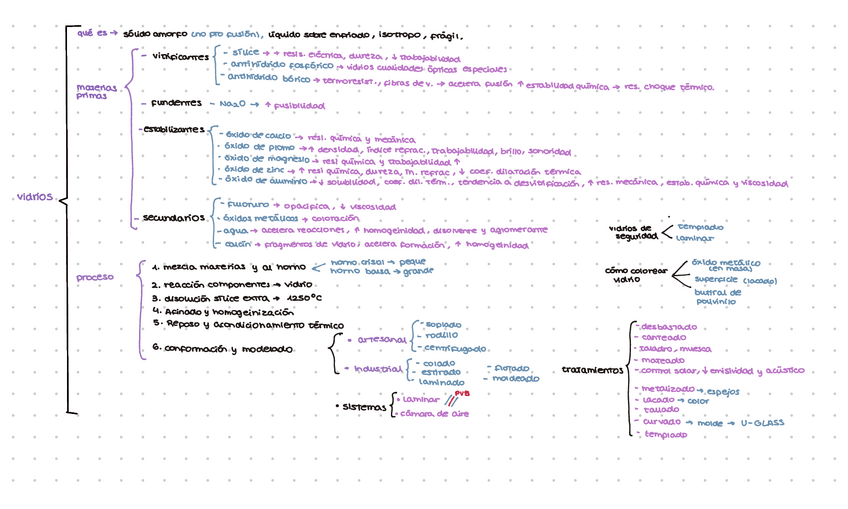 qué es → sólido amorfo (no pto fusión), líquido sobre enfriado, isotropo, frágil.
vidrios
materias primas
- vitrificantes
- sílice → + resis. eléctrica, dureza, ↓ trabajabilidad
- antihídrido fosfórico → vidrios cualidades ópticas especiales
- antihídrido bórico → termoresist., fibras de v. → acelera fusión ↑ estabilidad química → res. choque térmico.
- fundentes - Na₂O → ↑ fusibilidad
- estabilizantes
- óxido de calcio → resi. química y mecánica
- óxido de plomo → ↑ densidad, índice refrac., trabajabilidad, brillo, sonoridad
- óxido de magnesio → resi química y trabajabilidad ↑
- óxido de zinc → ↑ resi química, dureza, in. refrac, ↓ coef. dilatación térmica
- óxido de aluminio → ↓ solubilidad, coef. dil. térm., tendencia a desvitrificación, ↑ res. mecánica, estab. química y viscosidad
- secundarios
- fluoruro → opacifica, ↓ viscosidad
- óxidos metálicos → coloración
- agua → acelera reacciones, ↑ homogeinidad, disolvente y aglomerante
- calcín → fragmentos de vidrio; acelera formación, ↑ homogeinidad
proceso
1. mezcla materias y al horno
horno crisol → peque
horno balsa → grande
2. reacción componentes → vidrio
3. disolución sílice extra → 1250°C
4. Afinado y homogeinización
5. Reposo y acondicionamiento térmico
6. conformación y modelado
• artesanal
- soplado
- rodillo
- centrifugado.
• industrial
- colado
- estirado
- laminado
- flotado
- moldeado
• sistemas
• laminar PVB
• cámara de aire
vidrios de seguridad
templado
laminar
cómo colorear vidrio
óxido metálico (en masa)
superficie (lacado)
butiral de polvinilo
tratamientos
- desbastado
- canteado
- taladro, muesca
- mateado
- control solar, ↓ emisividad y acústico
- metalizado → espejos
- lacado → color
- tallado
- curvado → molde → U-GLASS
- templado